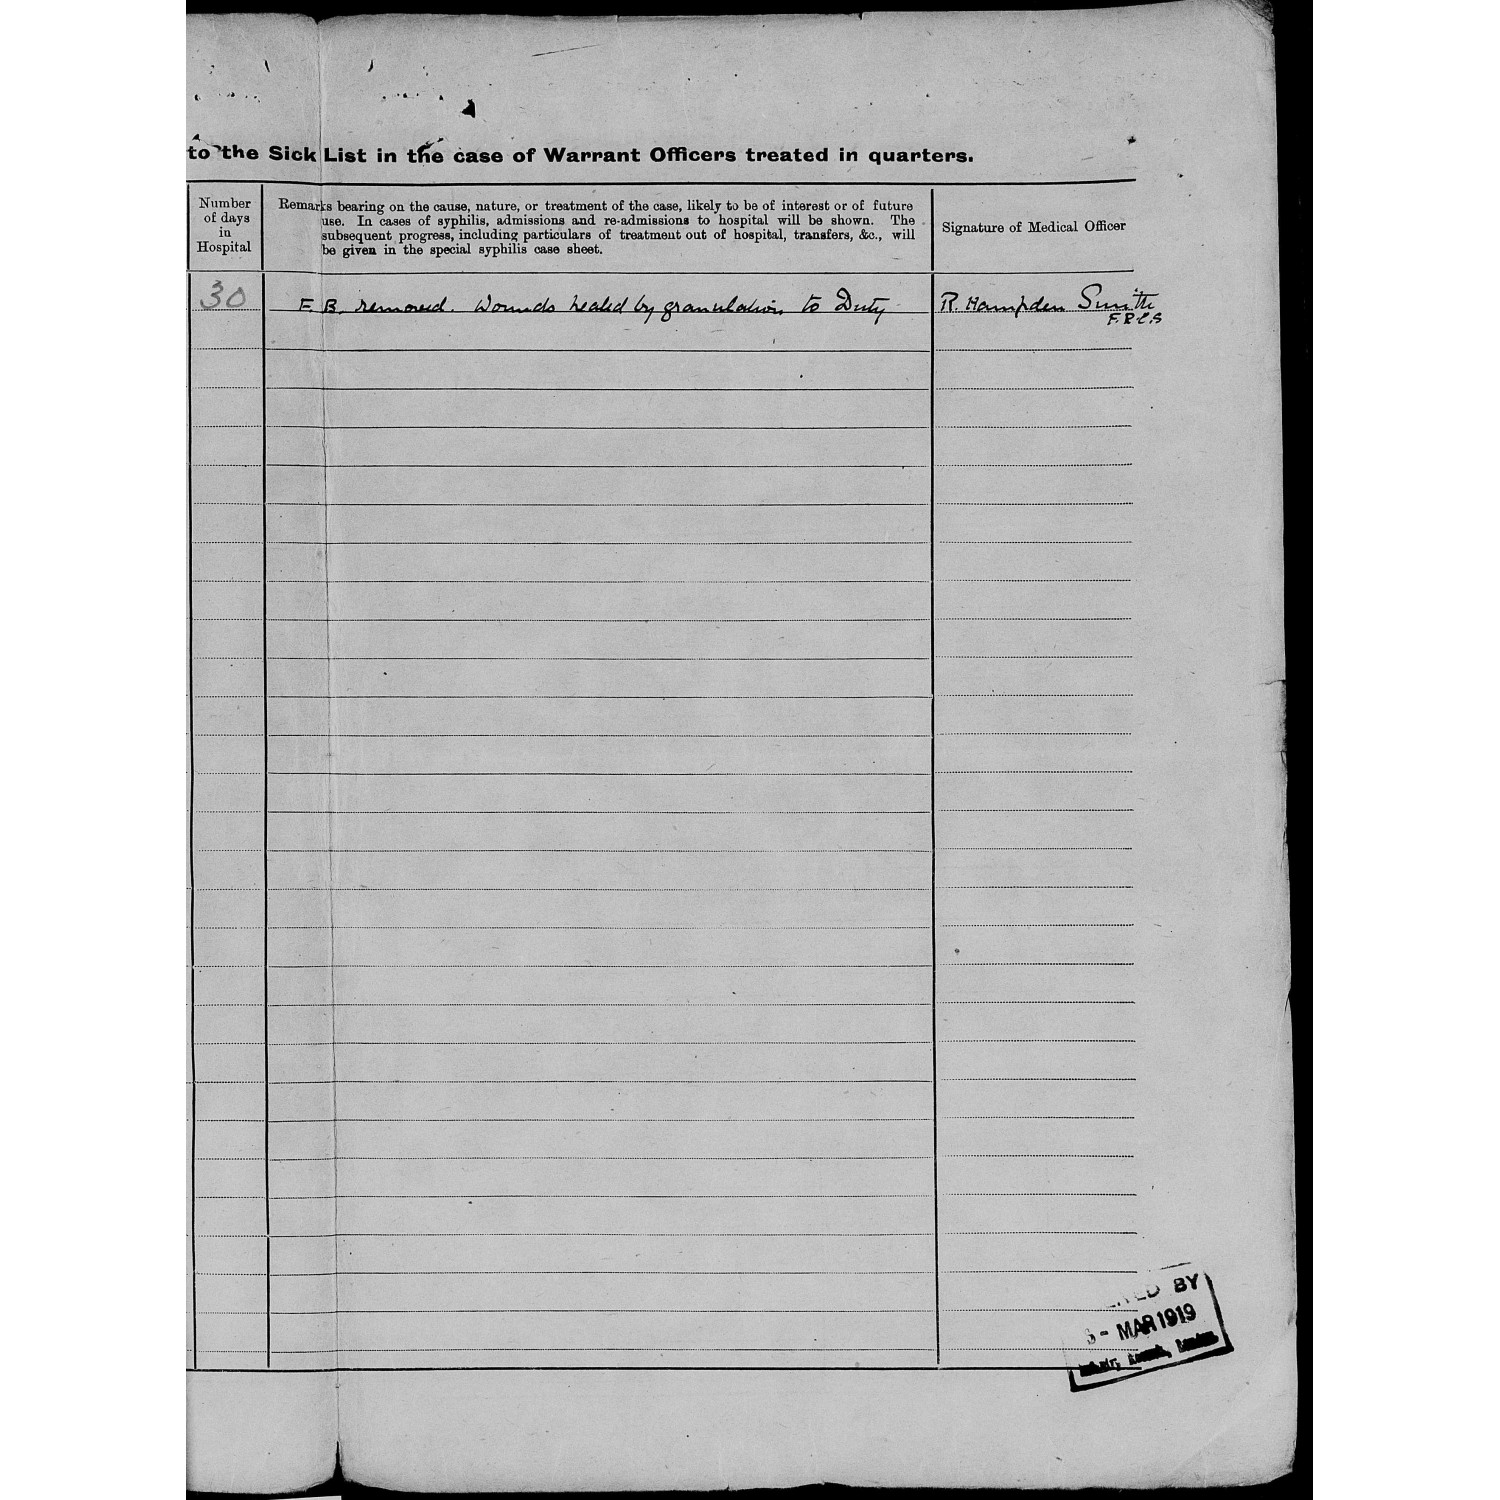 to the Sick List in the case of Warrant Officers treated in quarters.
Number
of days
in
Hospital
Remarks bearing on the cause, nature, or treatment of the case, likely to be of interest or of future
use. In cases of syphilis, admissions and re-admissions to hospital will be shown. The
subsequent progress, including particulars of treatment out of hospital, transfers, &c., will
be given in the special syphilis case sheet.
Signature of Medical Officer
30
F. B. removed. Wounds healed by granulation to Duty
R. Hampden Smith
F.R.C.S
BY
- MAR 1919